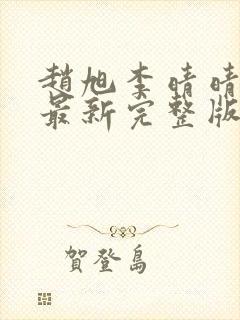 趙旭李晴晴
最新完整版
賀登島